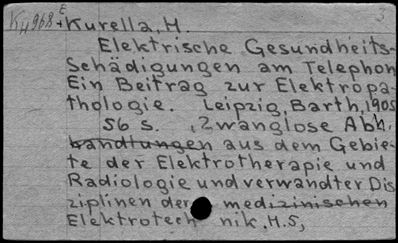 K 4968 E + Kurella, H. 3
Elektrische Gesundheits-
Schädigungen am Telephon
Ein Beitrag zur Elektropa-
thologie. Leipzig, Barth, 1905
56 s. , Zwanglose Abh.
handlungen aus dem Gebie-
te der Elektrotherapie und
Radiologie und verwandter Dis
ziplinen der medizinischen
Elektrotech nik. H.5,